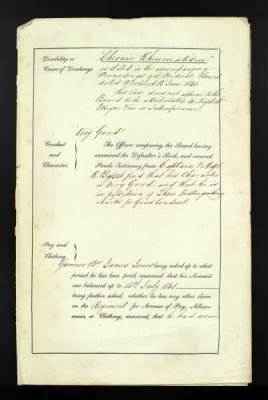 Disability or
Cause of Discharge.
"Chronic Rheumatism"
as stated in the accompanying
Proceedings of a Medical Board
dated Woolwich June 1841.
This Case does not appear to the
Board to be attributable to Neglect
Design, Vice or Intemperance.
Conduct
and
Character.
"Very Good"
The Officers composing the Board having
examined the Defaulter's Book, and received
Parole Testimony from Captain
R. find that his Character
is Very Good, and that he is
in possession of Three Distinguishing
Marks for Good Conduct
Pay and
Clothing.
Gunner James being asked up to what
period he has been paid, answered that his Account
was balanced up to July 1841
being further asked, whether he has any other claim
on the Regiment for Arrears of Pay, Allow-
ances, or Clothing, answered, that he had none